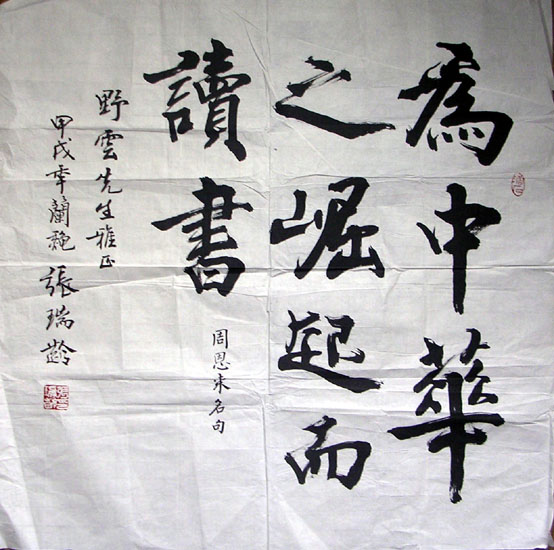 為中華
之崛起而
讀書
周恩来名句
野雲先生雅正
甲戌年蘭秋
張瑞齡